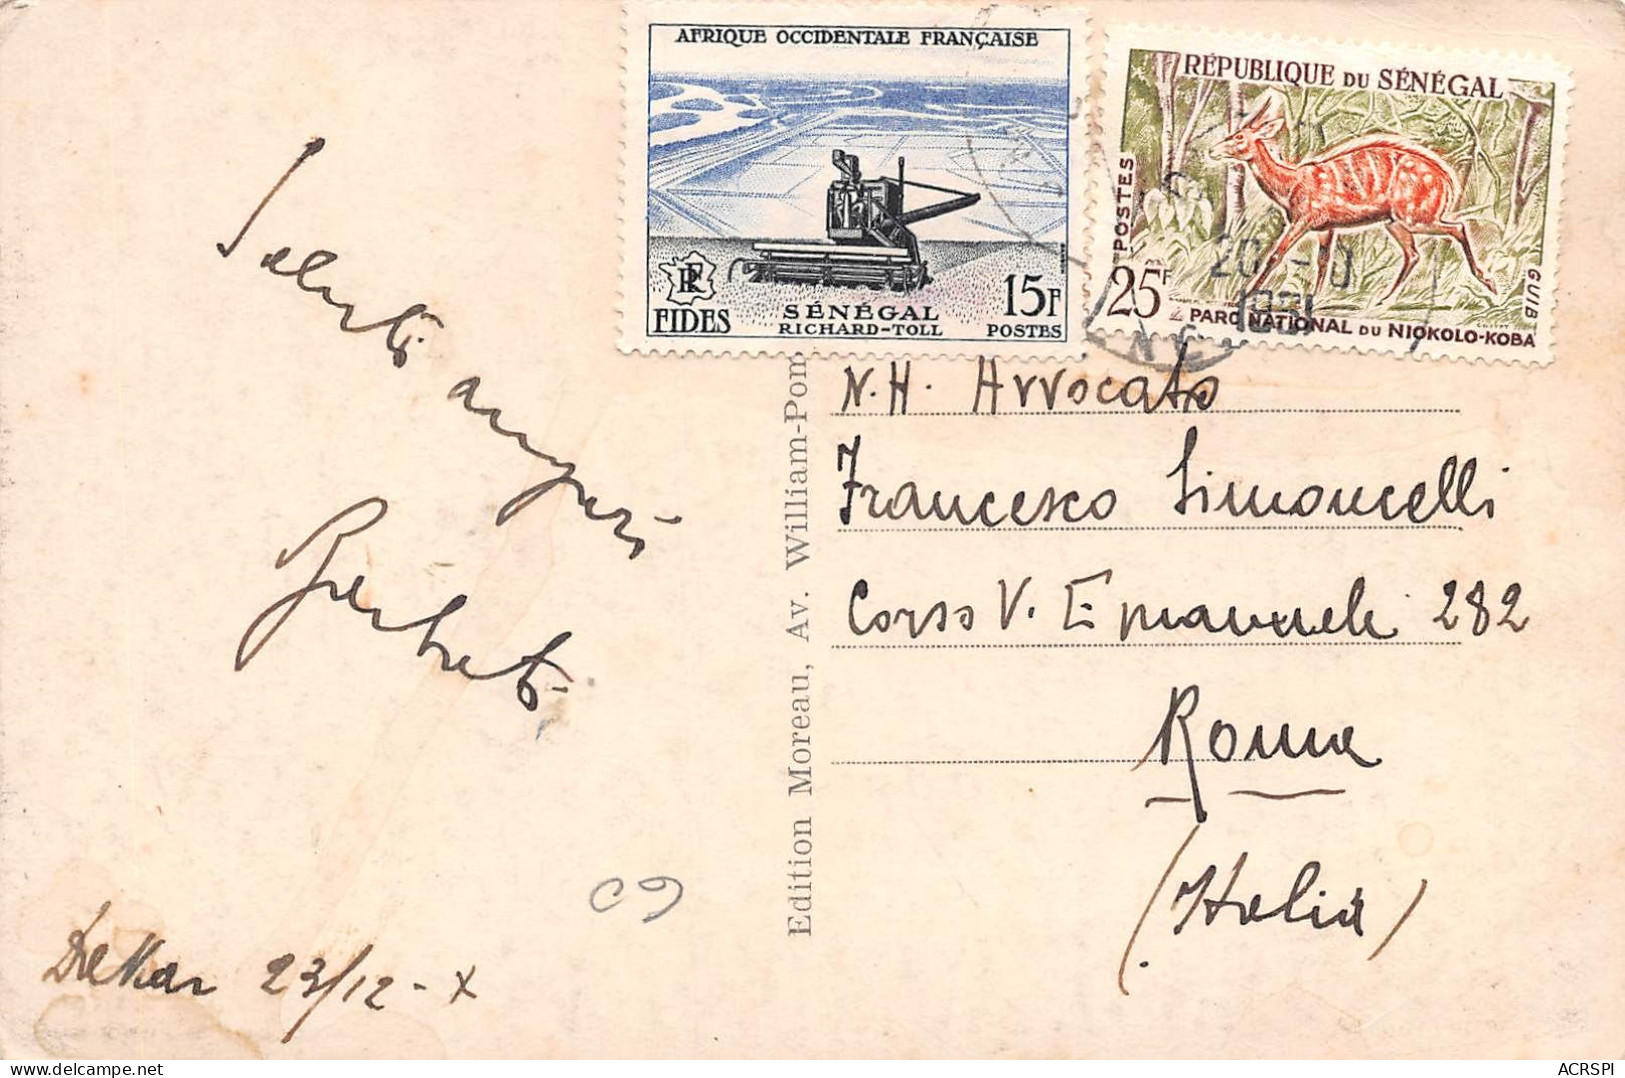 AFRIQUE OCCIDENTALE FRANÇAISE
RF
FIDES
SÉNÉGAL
RICHARD-TOLL
15F
POSTES
RÉPUBLIQUE DU SÉNÉGAL
POSTES
25F
GUIB
PARC NATIONAL DU NIOKOLO-KOBA
20 -10
1961
Saluti auguri
Dakar 23/12 - X
60
Edition Moreau, Av. William-Pon
N.H. Avvocato
Francesco Simoncelli
Corso V. Emanuele 282
Roma
(Italia)
delcampe.net
ACRSPI